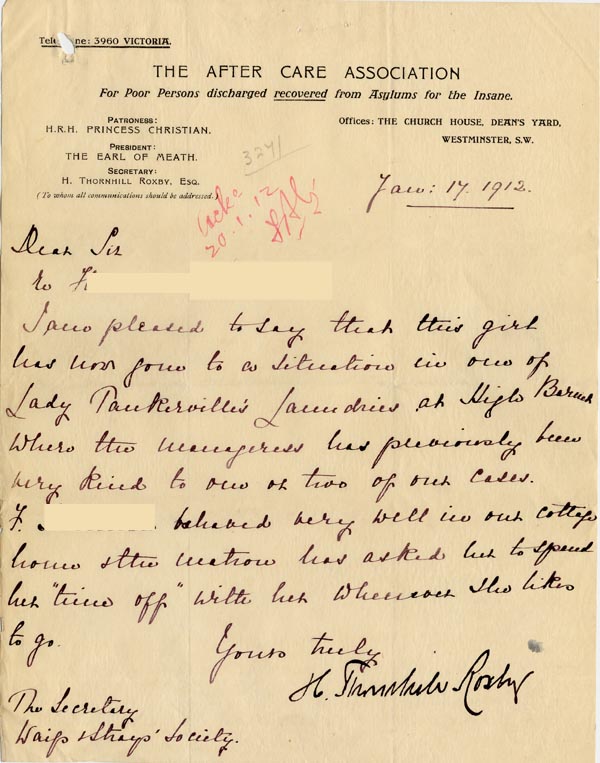 Tel ne: 3960 VICTORIA.
THE AFTER CARE ASSOCIATION
For Poor Persons discharged recovered from Asylums for the Insane.
PATRONESS:
H.R.H. PRINCESS CHRISTIAN.
PRESIDENT:
THE EARL OF MEATH.
SECRETARY:
H. THORNHILL ROXBY, ESQ.
(To whom all communications should be addressed.)
OFFICES: THE CHURCH HOUSE, DEAN'S YARD,
WESTMINSTER, S.W.
3241
20.1.12
Jan: 17. 1912.
Dear Sir
re F.
I am pleased to say that this girl
has now gone to a situation in one of
Lady Tankerville's Laundries at High Barnet
where the manageress has previously been
very kind to one or two of our cases.
F. behaved very well in our cottage
home & the matron has asked her to spend
her "time off" with her whenever she likes
to go.
Yours truly
H. Thornhill Roxby
The Secretary
Waifs & Strays' Society.